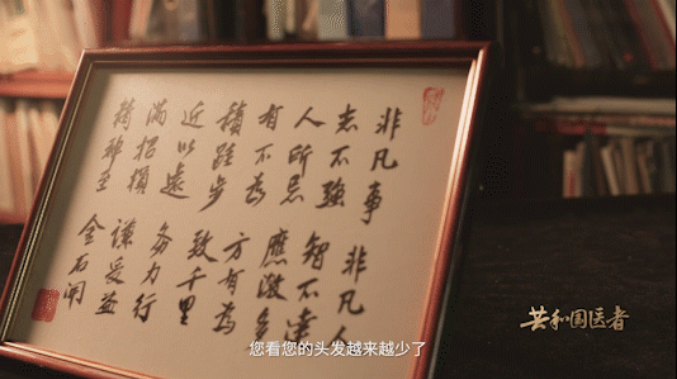 非凡事 非凡人
志不强 智不達
人所忌 應激多
有不為 方有為
積跬步 致千里
近以遠 务力行
滿招損 謙受益
精神至 金石開
共和国医者
您看您的头发越来越少了